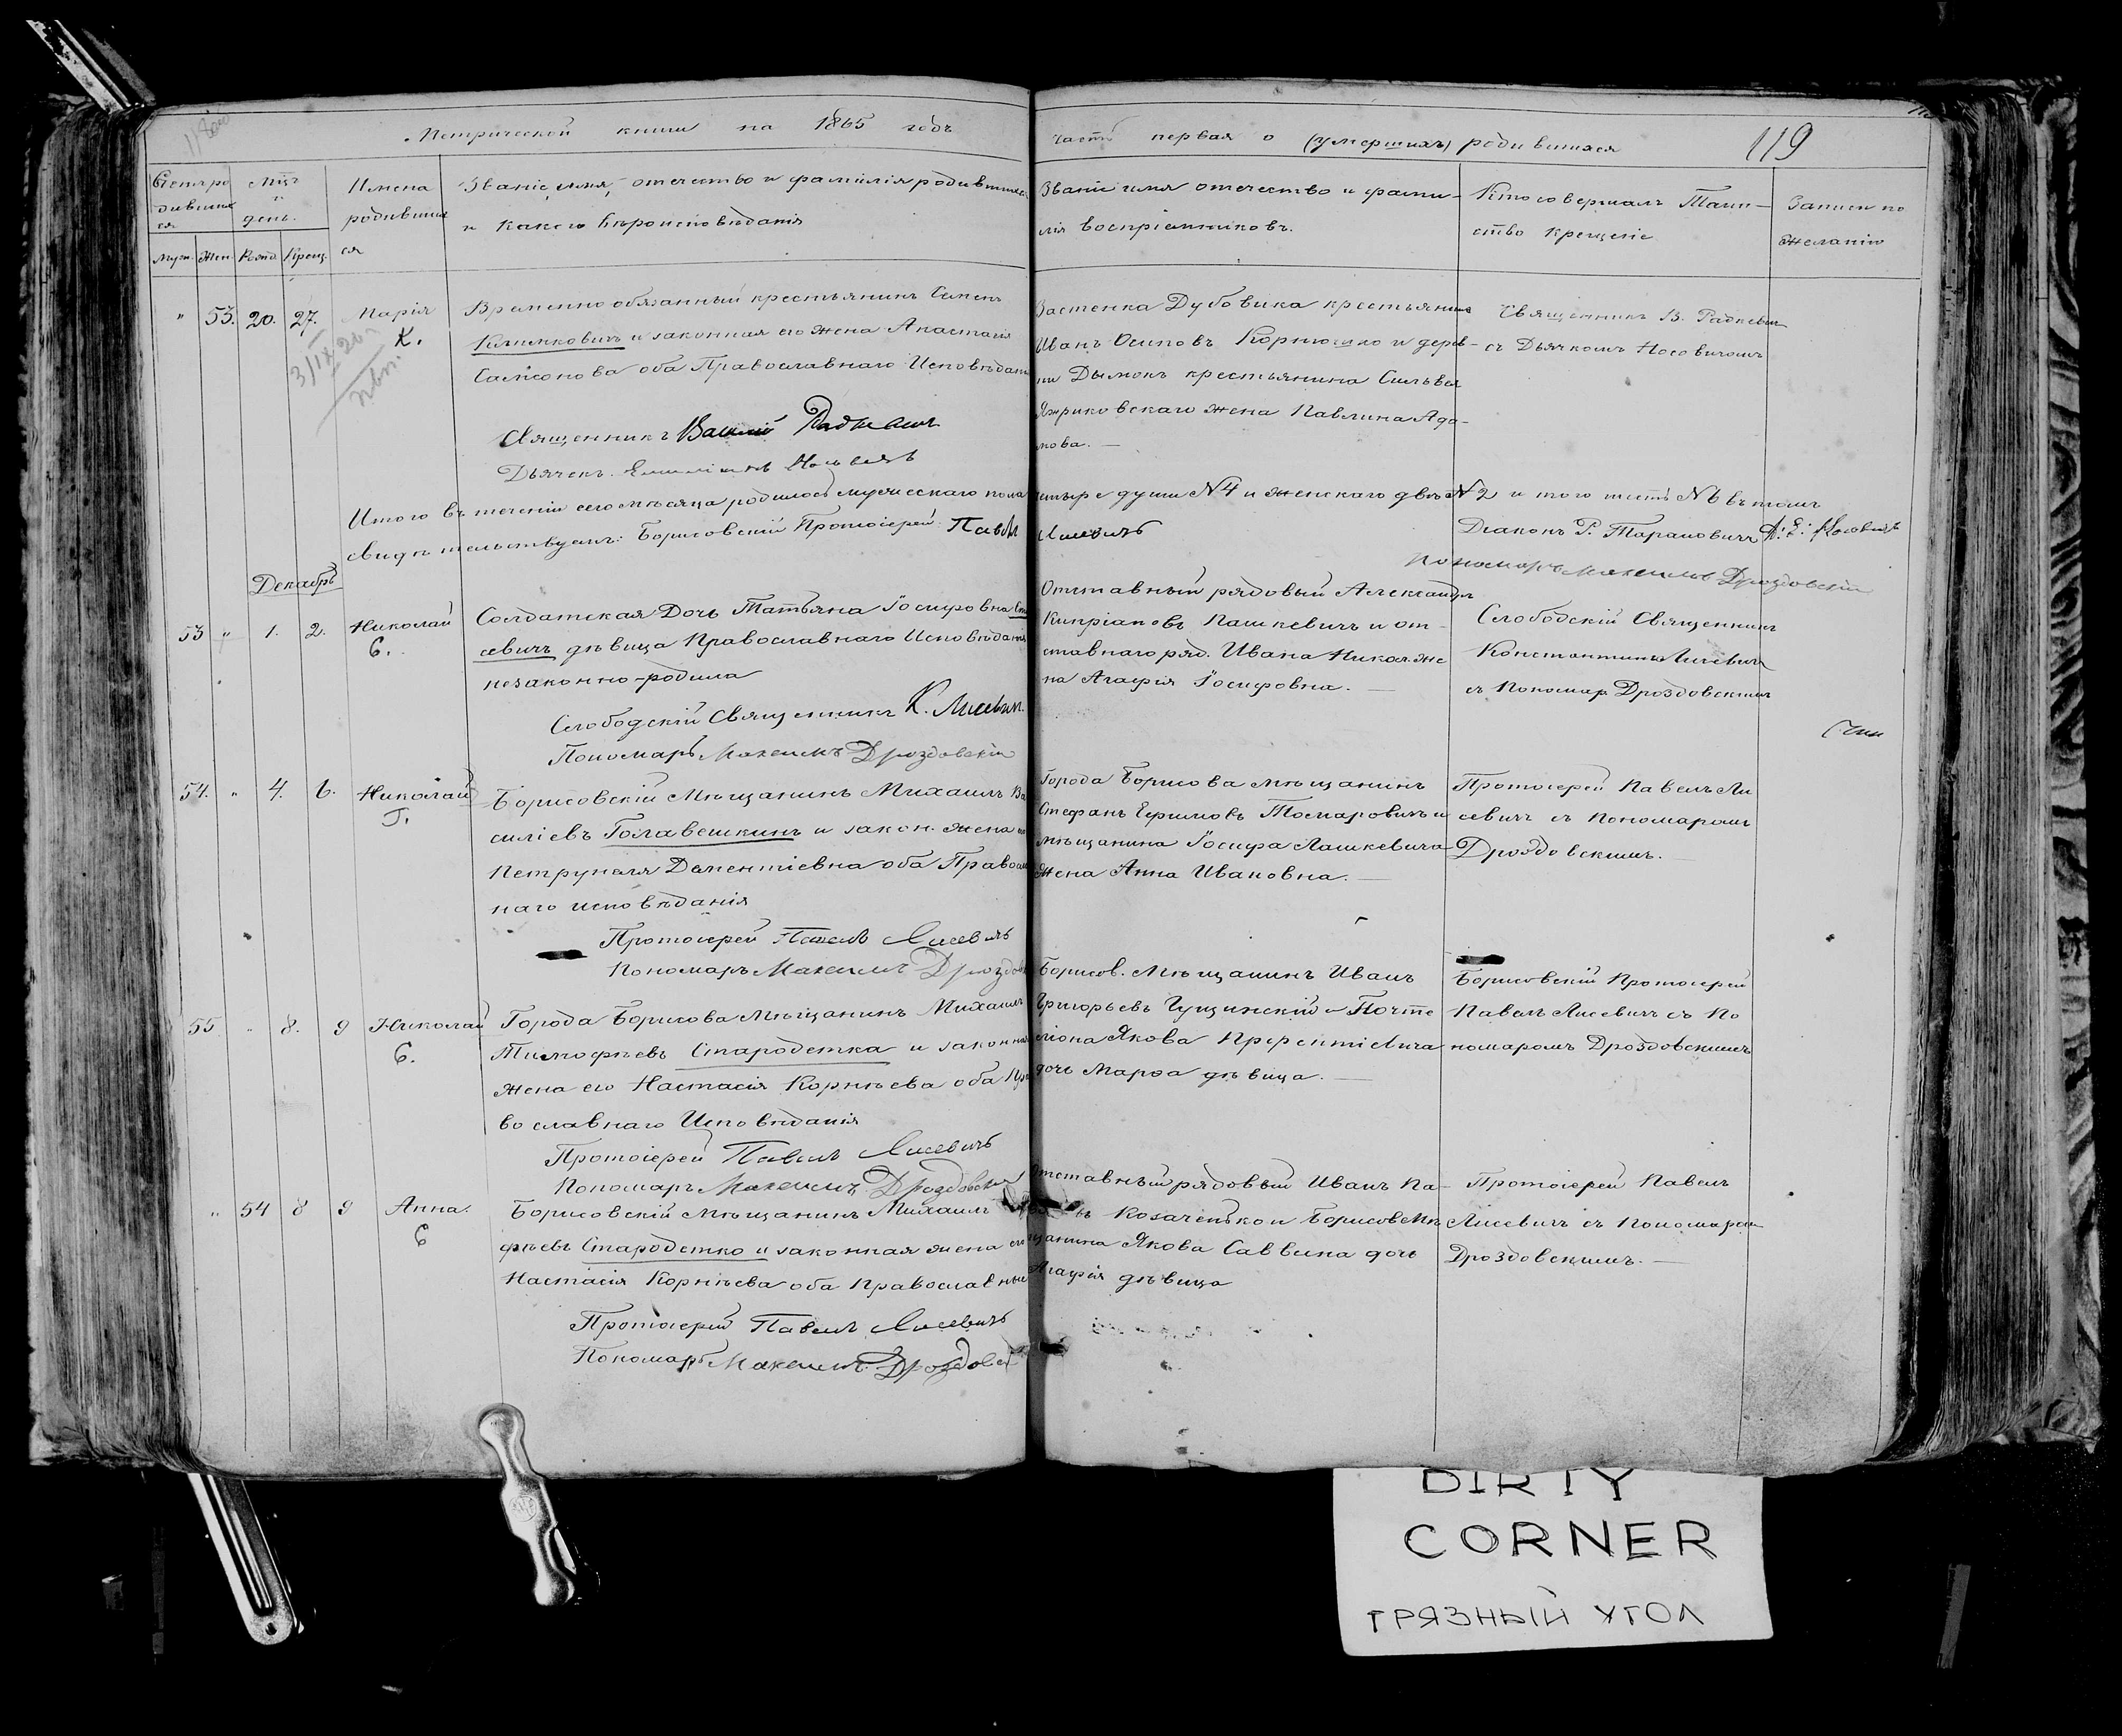 Метрической книги на 1865 годъ
часть первая о (умершихъ) родившихся 119
мцъ и день.
Имена родившихся
Званіе, имя, отечество и фамилія родившихся
и какого вѣроисповѣданія
Званіе имя отечество и фами-
лія воспріемниковъ.
Кто совершалъ Таин-
ство крещеніе
Записи по
желанію
Муж. Жен. Рожд. Крещ.
" 53. 20. 27. Марія
К.
Временно обязанный крестьянинъ Семенъ
Климковичъ и законная его жена Анастасія
Самсонова оба Православнаго Исповѣданія
Застенка Дубовика крестьянинъ
Иванъ Осиповъ Корнюшко и дерев-
ни Дымокъ крестьянина
жена Павлина Ада-
мова. —
Священникъ В. Радкевичъ
съ Дьячкомъ Носовичомъ
Священникъ Василій Радкевичъ
Дьячекъ
Итого въ теченіи сего мѣсяца родилось мужескаго пола
четыре души №4 и женскаго двѣ №2 и того шесть №6 въ томъ
свидѣтельствуемъ: Борисовскій Протоіерей Павелъ
Лисевичъ
Діаконъ Р. Тарановичъ Носовичъ
Пономарь Максимъ Дроздовскій
Декабрь
53 " 1. 2. Николай
Б.
Солдатская Дочь Татьяна Іосифовна
севичъ дѣвица Православнаго Исповѣданія
незаконно-родила
Отставный рядовый Александръ
Кипріановъ Пашкевичъ и от-
ставнаго ряд. Ивана Никол. же-
на Агафія Іосифовна. —
Слободскій Священникъ
Константинъ Лисевичъ
съ Пономар. Дроздовскимъ
Слободскій Священникъ К. Лисевичъ.
Пономарь Максимъ Дроздовскій
54. " 4. 6. Николай
Г.
Борисовскій Мѣщанинъ Михаилъ Ва
силіевъ Головешкинъ и закон. жена его
Петрунеля Дементіевна оба Православ
наго исповѣданія
Города Борисова мѣщанинъ
Стефанъ Томаровичъ и
мѣщанина Іосифа Лашкевича
жена Анна Ивановна. —
Протоіерей Павелъ Ли
севичъ съ Пономаромъ
Дроздовскимъ. —
Протоіерей Павелъ Лисевичъ
Пономарь Максимъ Дроздов
55 " 8. 9 Николай
Б.
Города Борисова Мѣщанинъ Михаилъ
Тимофѣевъ Стародетка и законная
жена его Настасія Корнѣева оба Пра
вославнаго Исповѣданія
Борисов. Мѣщанинъ Иванъ
Григорьевъ Гущинскій и Почта
ліона Якова
дочь Марѳа дѣвица. —
Борисовскій Протоіерей
Павелъ Лисевичъ съ По
номаромъ Дроздовскимъ
Протоіерей Павелъ Лисевичъ
Пономарь Максимъ Дроздовскій
" 54 8 9 Анна.
Б
Борисовскій Мѣщанинъ Михаилъ
фѣевъ Стародетко и законная жена его
Настасія Корнѣева оба Православные
Отставный рядовый Иванъ Па-
Козаченько и Борисов Мѣ
щанина Якова Саввина дочь
Агафія дѣвица
Протоіерей Павелъ
Лисевичъ съ Пономаромъ
Дроздовскимъ. —
Протоіерей Павелъ Лисевичъ
Пономарь Максимъ Дроздовск
DIRTY
CORNER
ГРЯЗНЫЙ УГОЛ